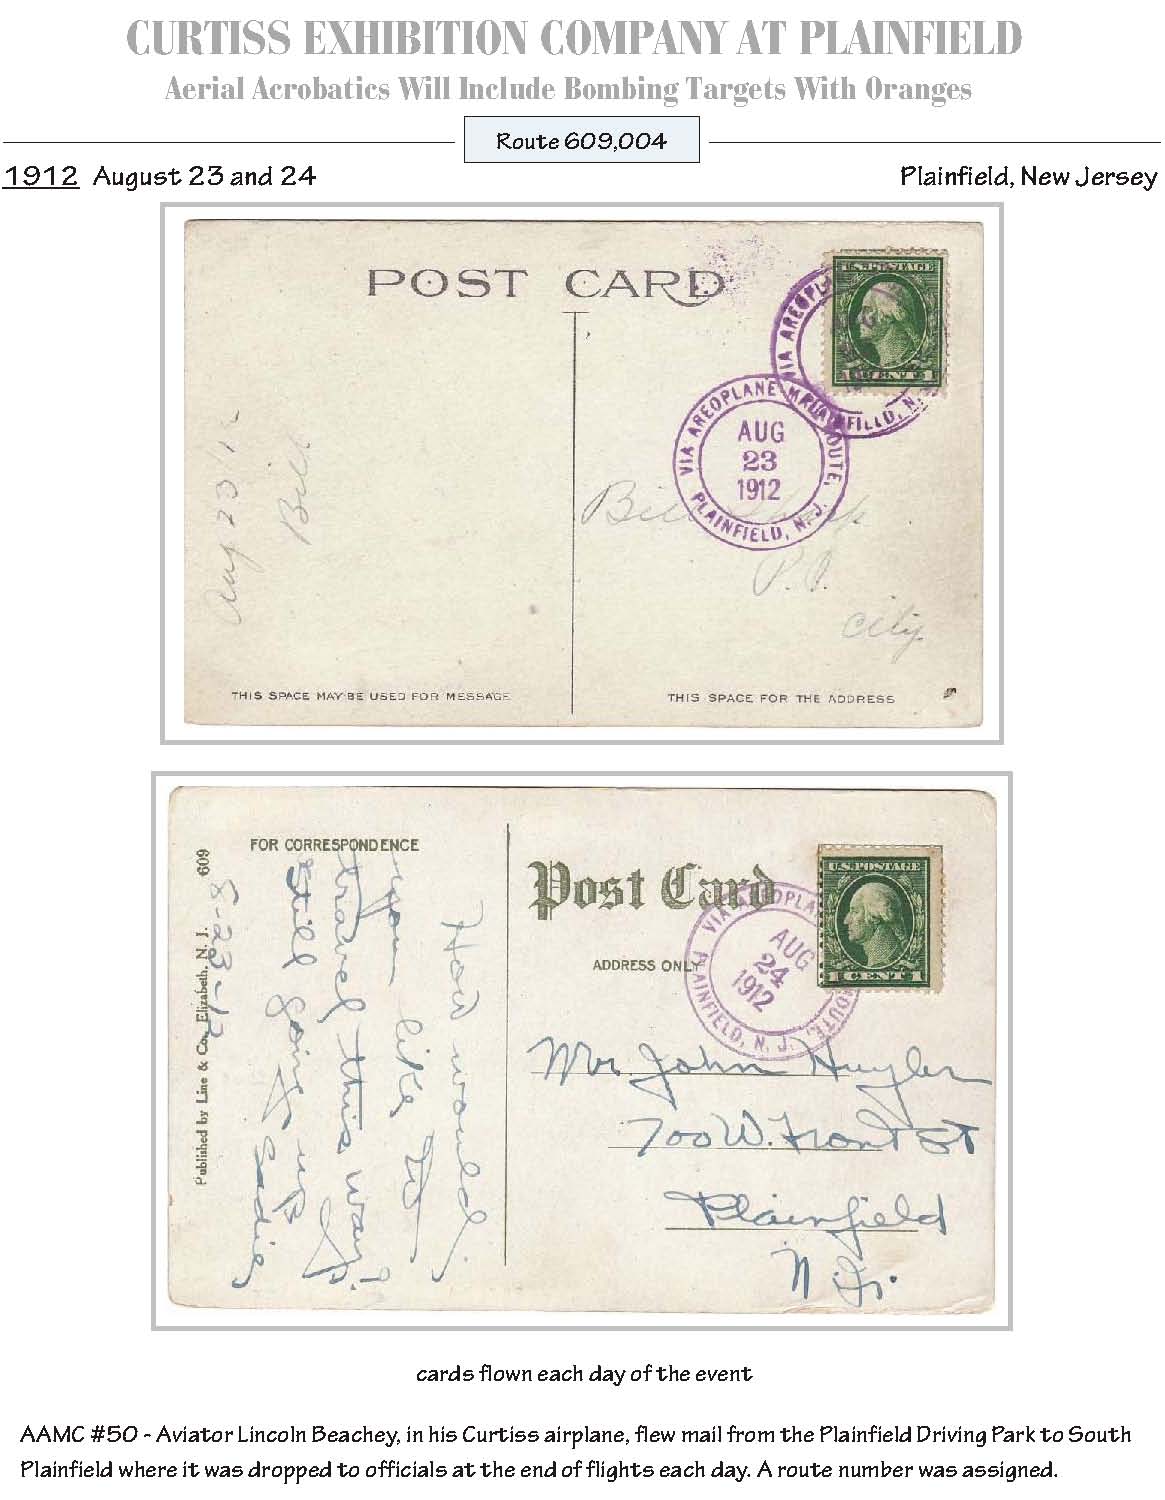 CURTISS EXHIBITION COMPANY AT PLAINFIELD
Aerial Acrobatics Will Include Bombing Targets With Oranges
Route 609,004
1912 August 23 and 24
Plainfield, New Jersey
POST CARD
U.S. POSTAGE
1 CENT 1
VIA AREOPLANE
PLAINFIELD, N.
VIA AREOPLANE MAIL ROUTE,
AUG
23
1912
PLAINFIELD, N. J.
Aug 23 12
Bill
Bill
P.O.
City
THIS SPACE MAY BE USED FOR MESSAGE
THIS SPACE FOR THE ADDRESS
FOR CORRESPONDENCE
609
Published by Line & Co., Elizabeth, N. J.
8-23-12
How would
you like to
travel this way?
Still going up
Sadie
Post Card
ADDRESS ONLY
U.S. POSTAGE
1 CENT 1
VIA AREOPLA
ROUTE,
AUG
24
1912
PLAINFIELD, N. J.
Mr. John Huyler
700 W. Front St
Plainfield
N.J.
cards flown each day of the event
AAMC #50 - Aviator Lincoln Beachey, in his Curtiss airplane, flew mail from the Plainfield Driving Park to South
Plainfield where it was dropped to officials at the end of flights each day. A route number was assigned.